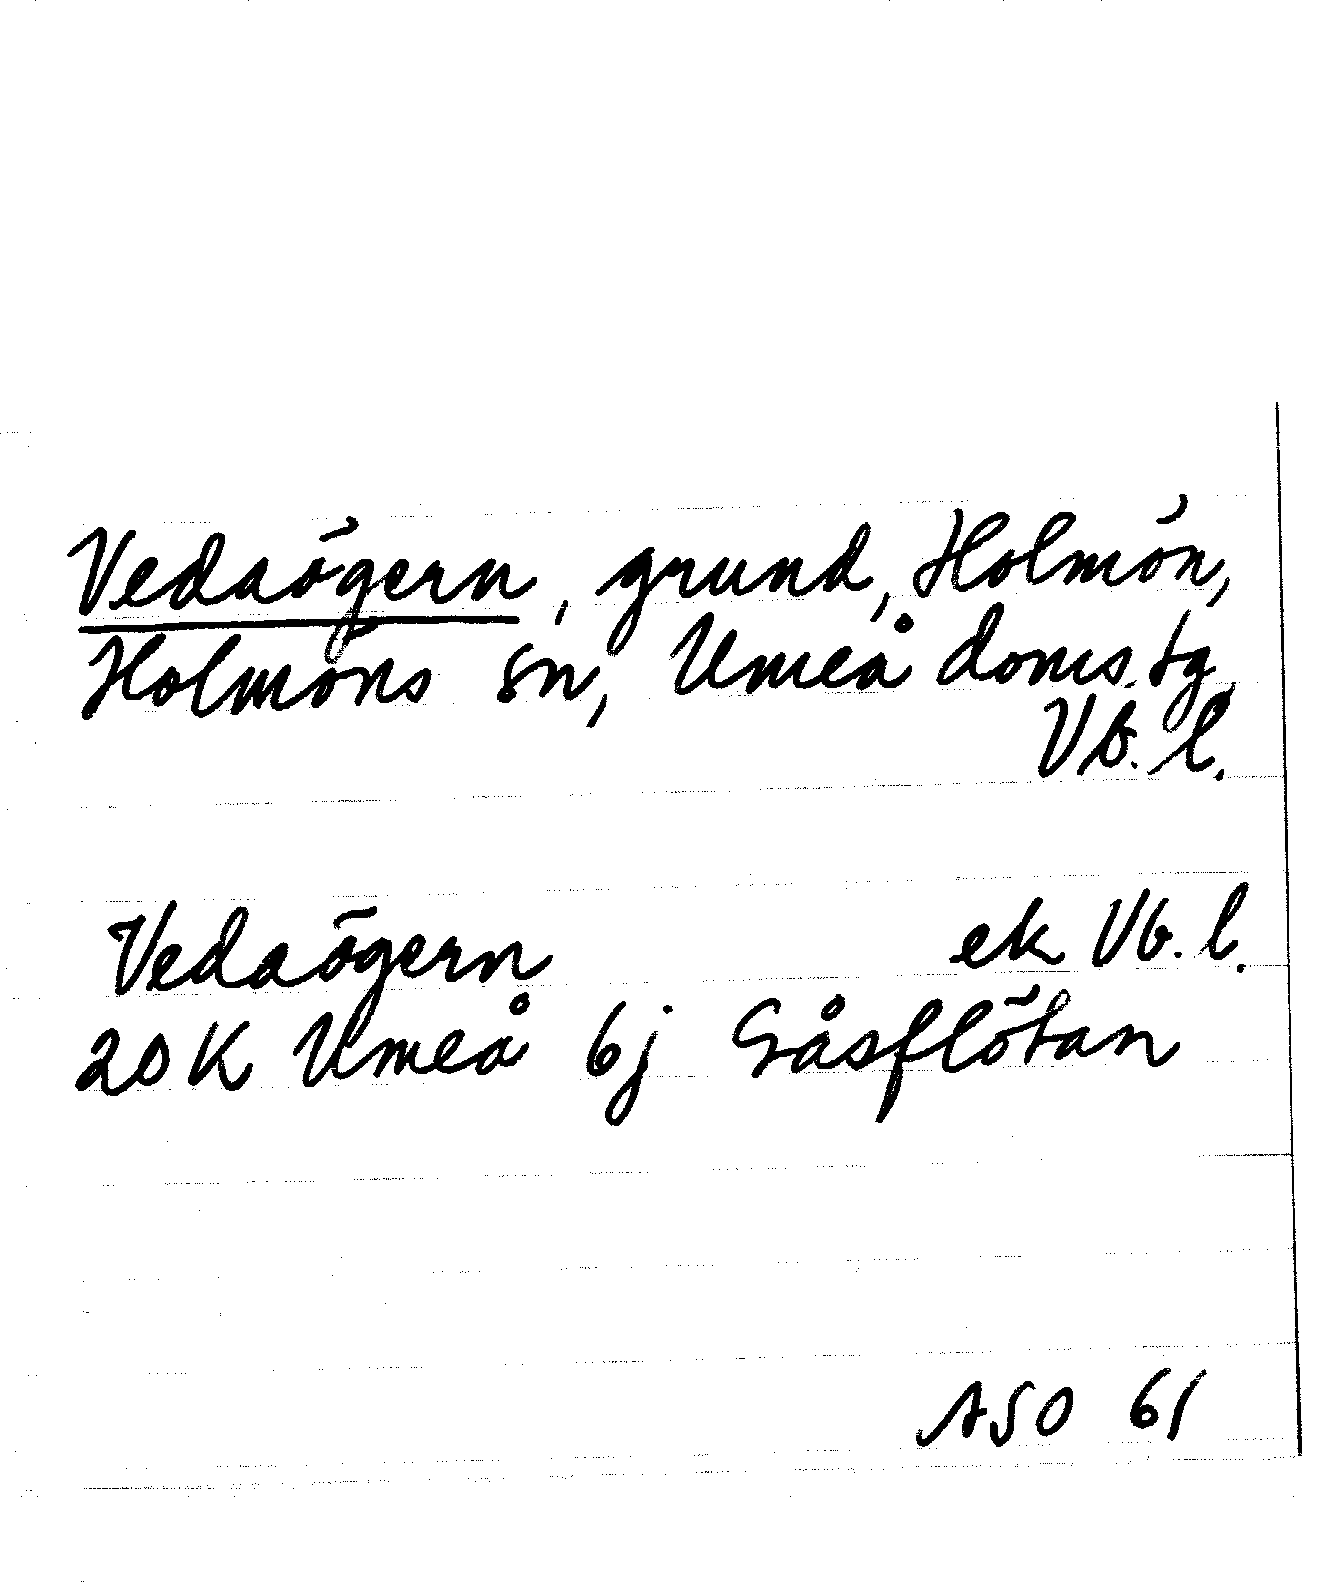 Vedaögern, grund, Holmön,
Holmöns sn, Umeå doms.tg
Vb. l.
Vedaögern ek Vb. l.
20 K Umeå 6j Gåsflötan
ASO 61